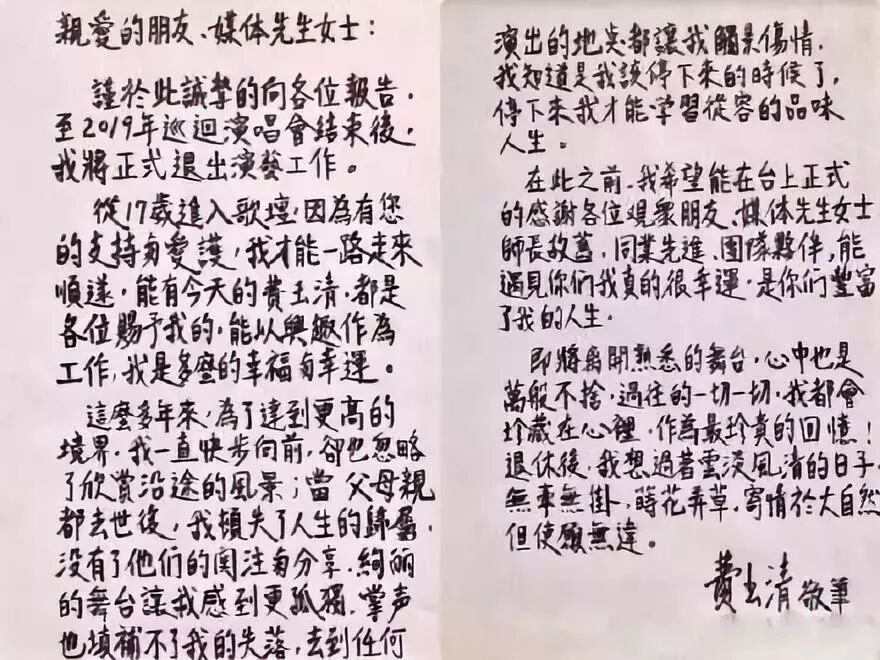 親愛的朋友、媒体先生女士：
謹於此誠摯的向各位報告，
至2019年巡迴演唱會結束後，
我將正式退出演藝工作。
從17歲進入歌壇，因為有您
的支持與愛護，我才能一路走來
順遂，能有今天的費玉清，都是
各位賜予我的，能以興趣作為
工作，我是多麼的幸福與幸運。
這麼多年來，為了達到更高的
境界，我一直快步向前，卻也忽略
了欣賞沿途的風景；當父母親
都去世後，我頓失了人生的歸屬，
没有了他們的関注與分享，絢丽
的舞台讓我感到更孤獨，掌声
也填補不了我的失落，去到任何
演出的地点都讓我觸景傷情，
我知道是我該停下來的時候了，
停下來我才能学習從容的品味
人生。
在此之前，我希望能在台上正式
的感謝各位观眾朋友、媒体先生女士
師長故舊，同業先進、團隊夥伴，能
遇見你們我真的很幸運，是你們豐富
了我的人生。
即將离開熟悉的舞台，心中也是
萬般不捨，過往的一切一切，我都會
珍藏在心裡，作為最珍貴的回憶！
退休後，我想過著雲淡風清的日子，
無牽無掛，蒔花弄草，寄情於大自然
但使願無違。
費玉清 敬筆